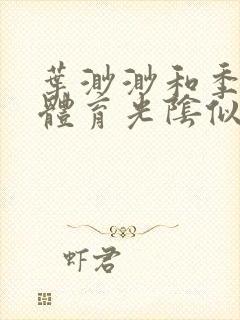 葉渺渺和季
體育光陰似
虾君